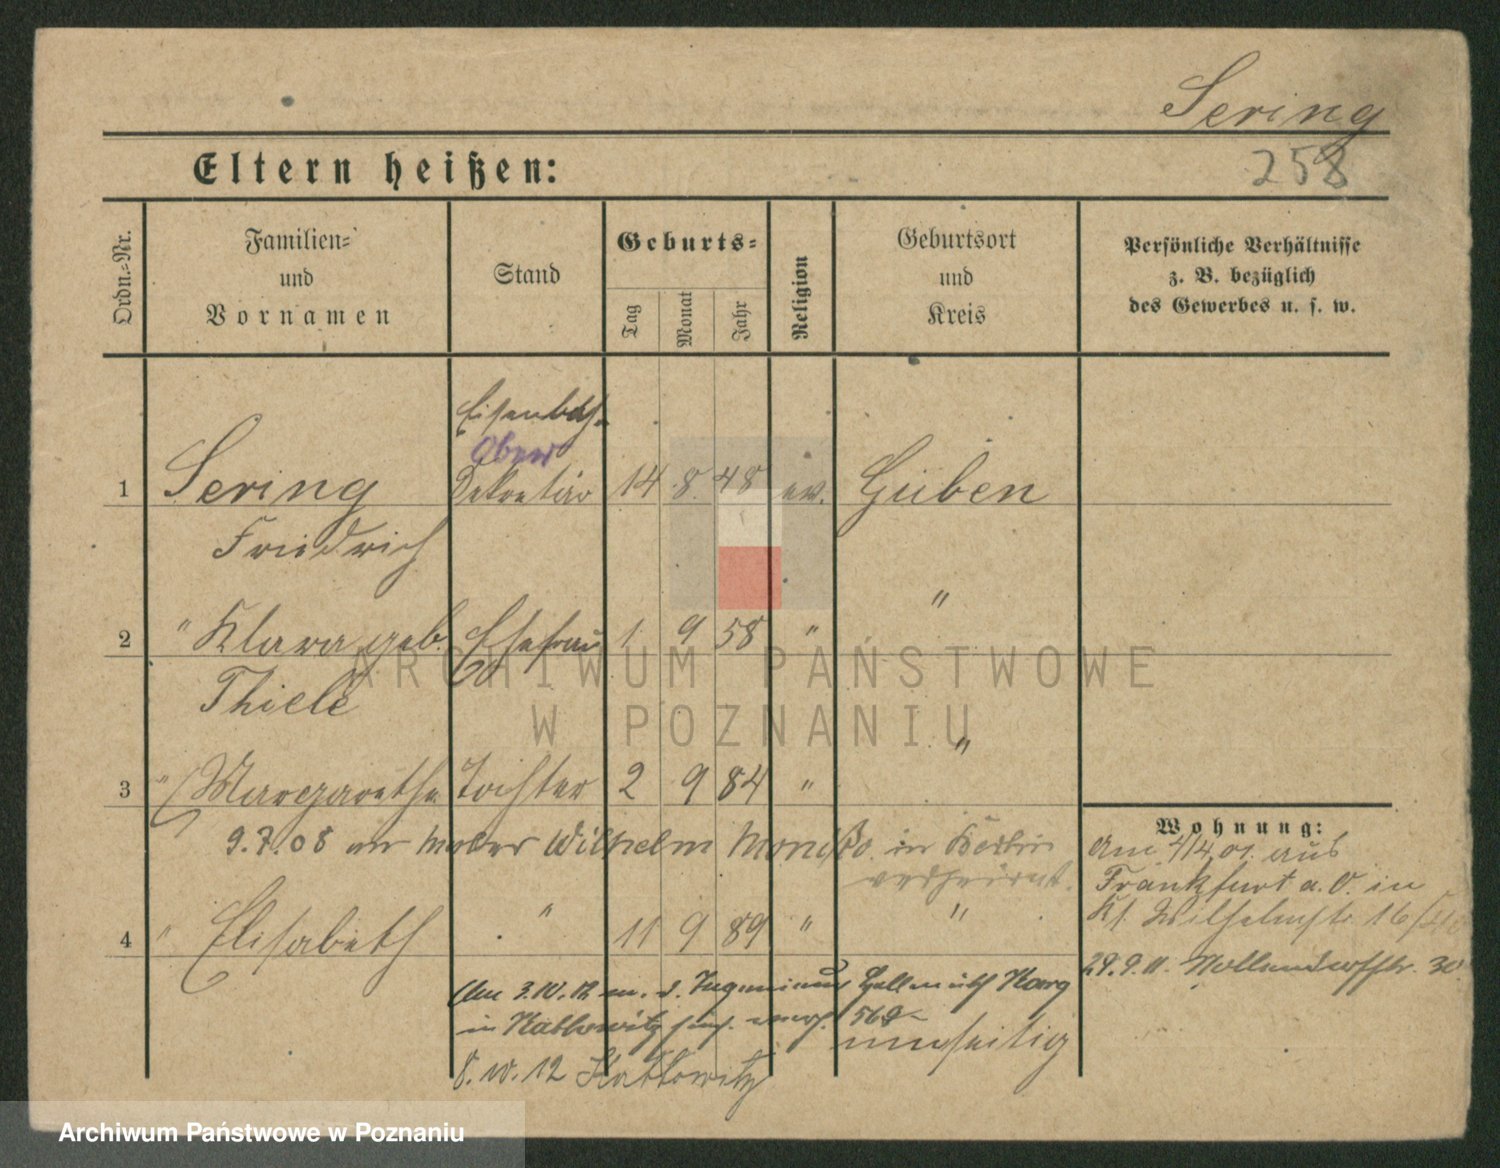 Sering
258
Eltern heißen:
Ordn.-Nr.
Familien-
und
Vornamen
Stand
Geburts-
Tag
Monat
Jahr
Religion
Geburtsort
und
Kreis
Persönliche Verhältnisse
z. B. bezüglich
des Gewerbes u. s. w.
Eisenbah.
Ober
1 Sering Sekretär 14 8. 48 ev. Guben
Friedrich
2 " Klara geb. Ehefrau 1. 9 58 " "
Thiele
3 " Margarethe Tochter 2 9 84 " "
9.7.08 Wilhelm in
verheirat.
4 " Elisabeth " 11 9 89 " "
Am 3.IV.12 m. d. Ingenieur Harg
in Kattowitz 568
umseitig
8.10.12 Kattowitz
Wohnung:
Am 4/4.01. aus
Frankfurt a. O. in
Wilhelmstr. 16
29.9.11. Nollendorfstr. 30
ARCHIWUM PAŃSTWOWE
W POZNANIU
Archiwum Państwowe w Poznaniu